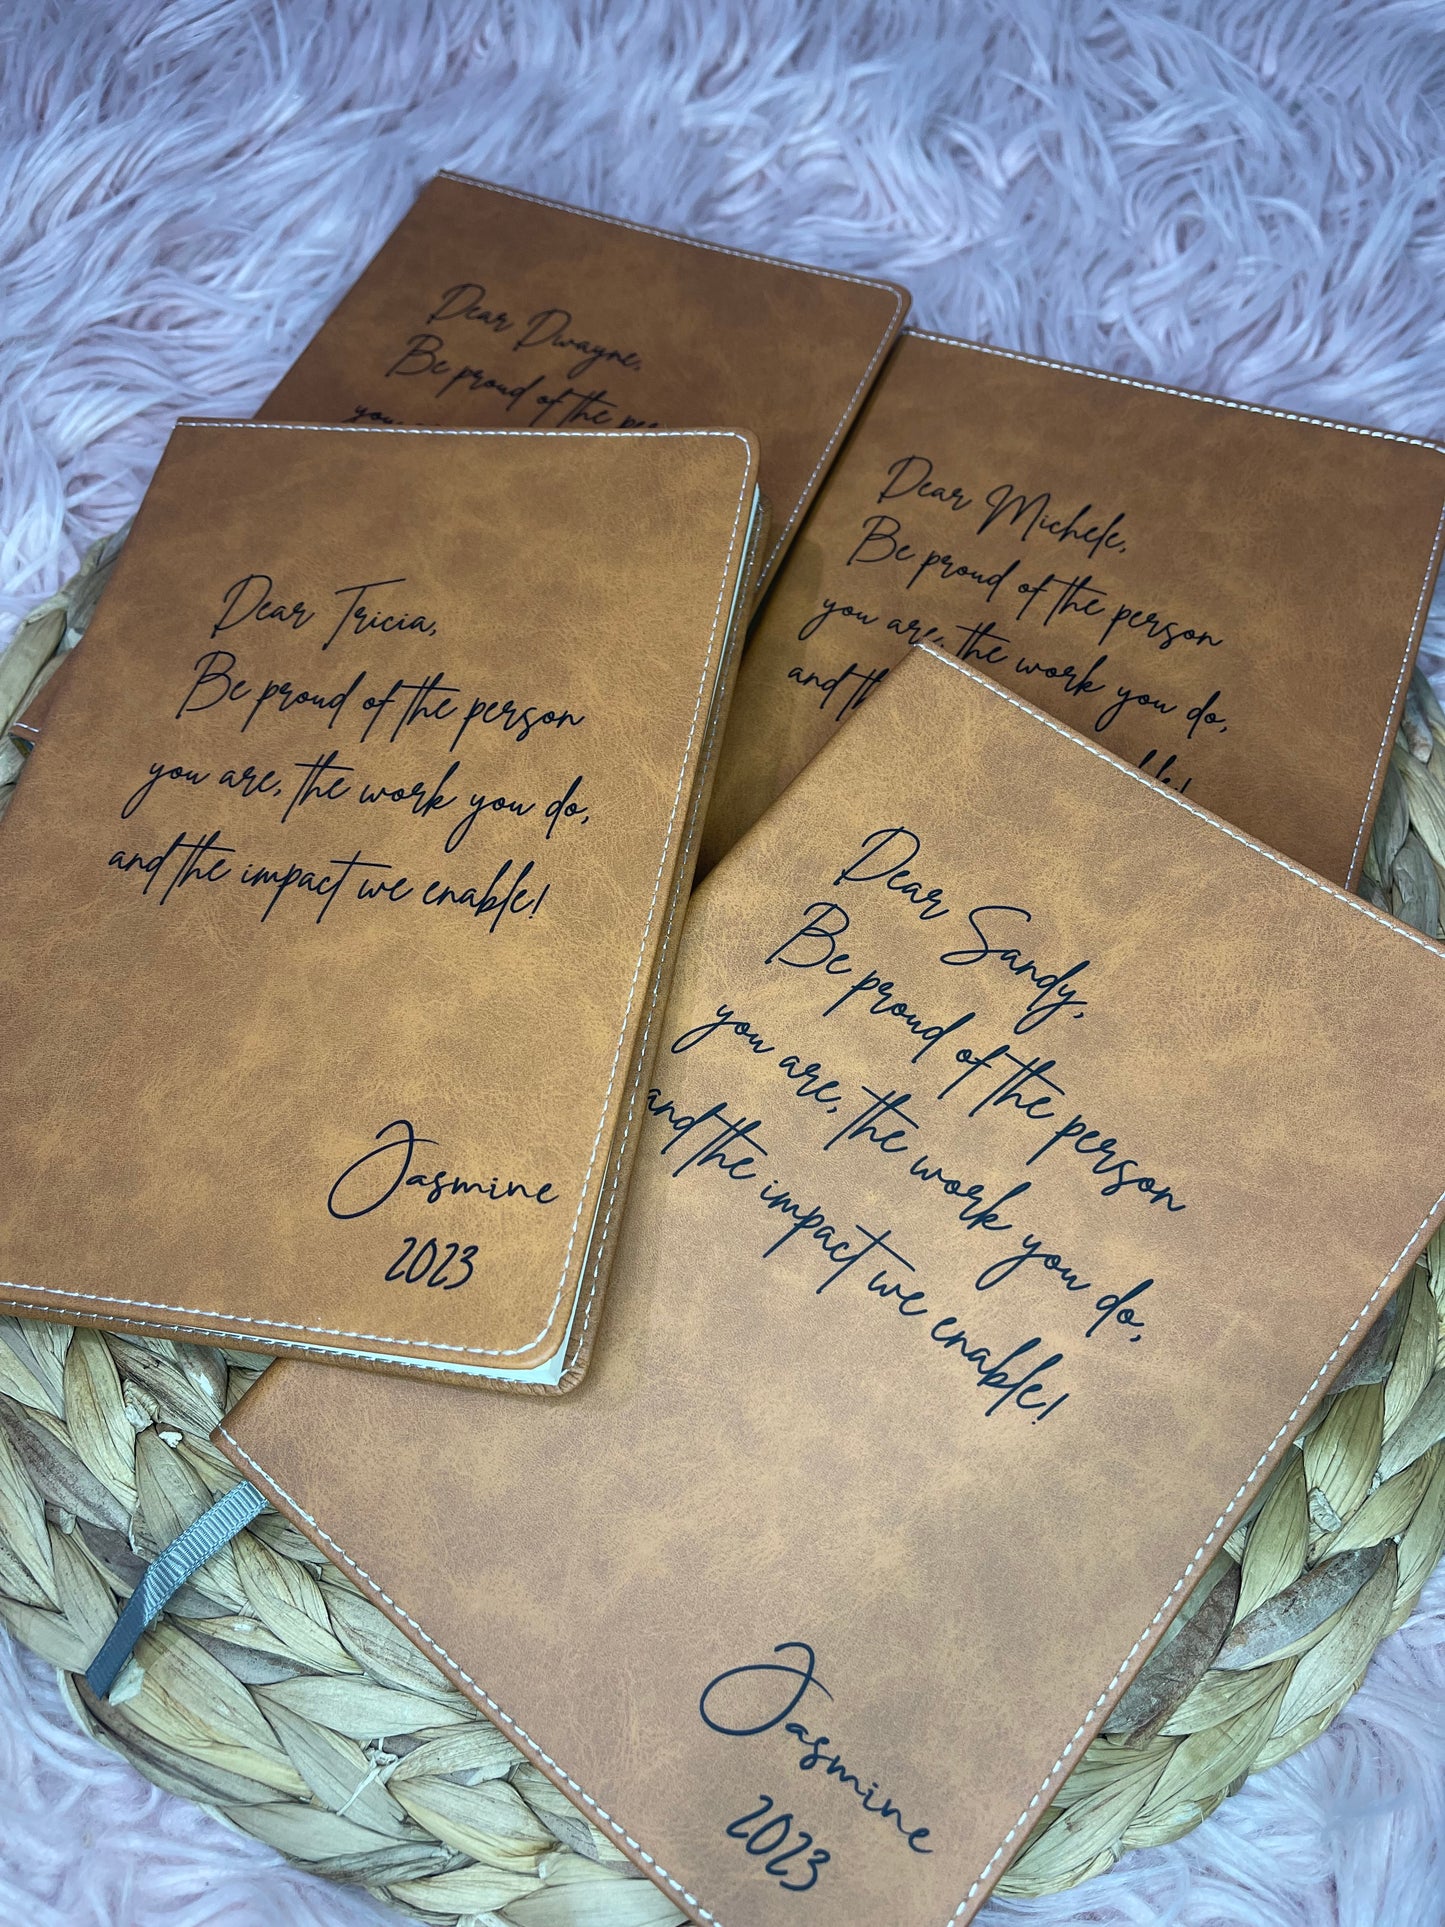 Dear Dwayne,
Be proud of the
you
Dear Michele,
Be proud of the person
you are, the work you do,
and
Dear Tricia,
Be proud of the person
you are, the work you do,
and the impact we enable!
Jasmine
2023
Dear Sandy,
Be proud of the person
you are, the work you do,
and the impact we enable!
Jasmine
2023